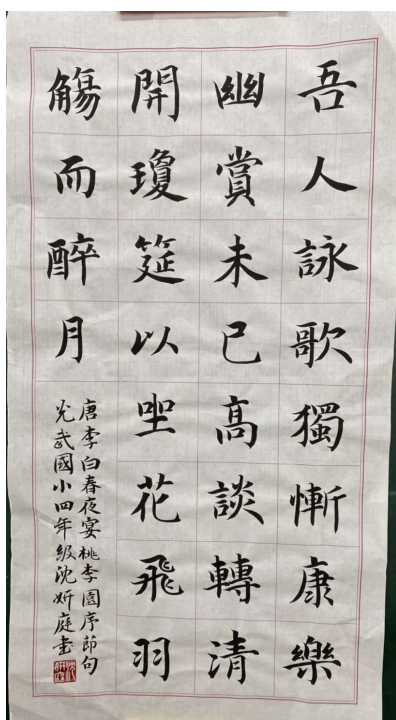 吾人詠歌獨慚康樂
幽賞未已高談轉清
開瓊筵以坐花飛羽
觴而醉月
唐李白春夜宴桃李園序節句
光武國小四年級沈妍庭書